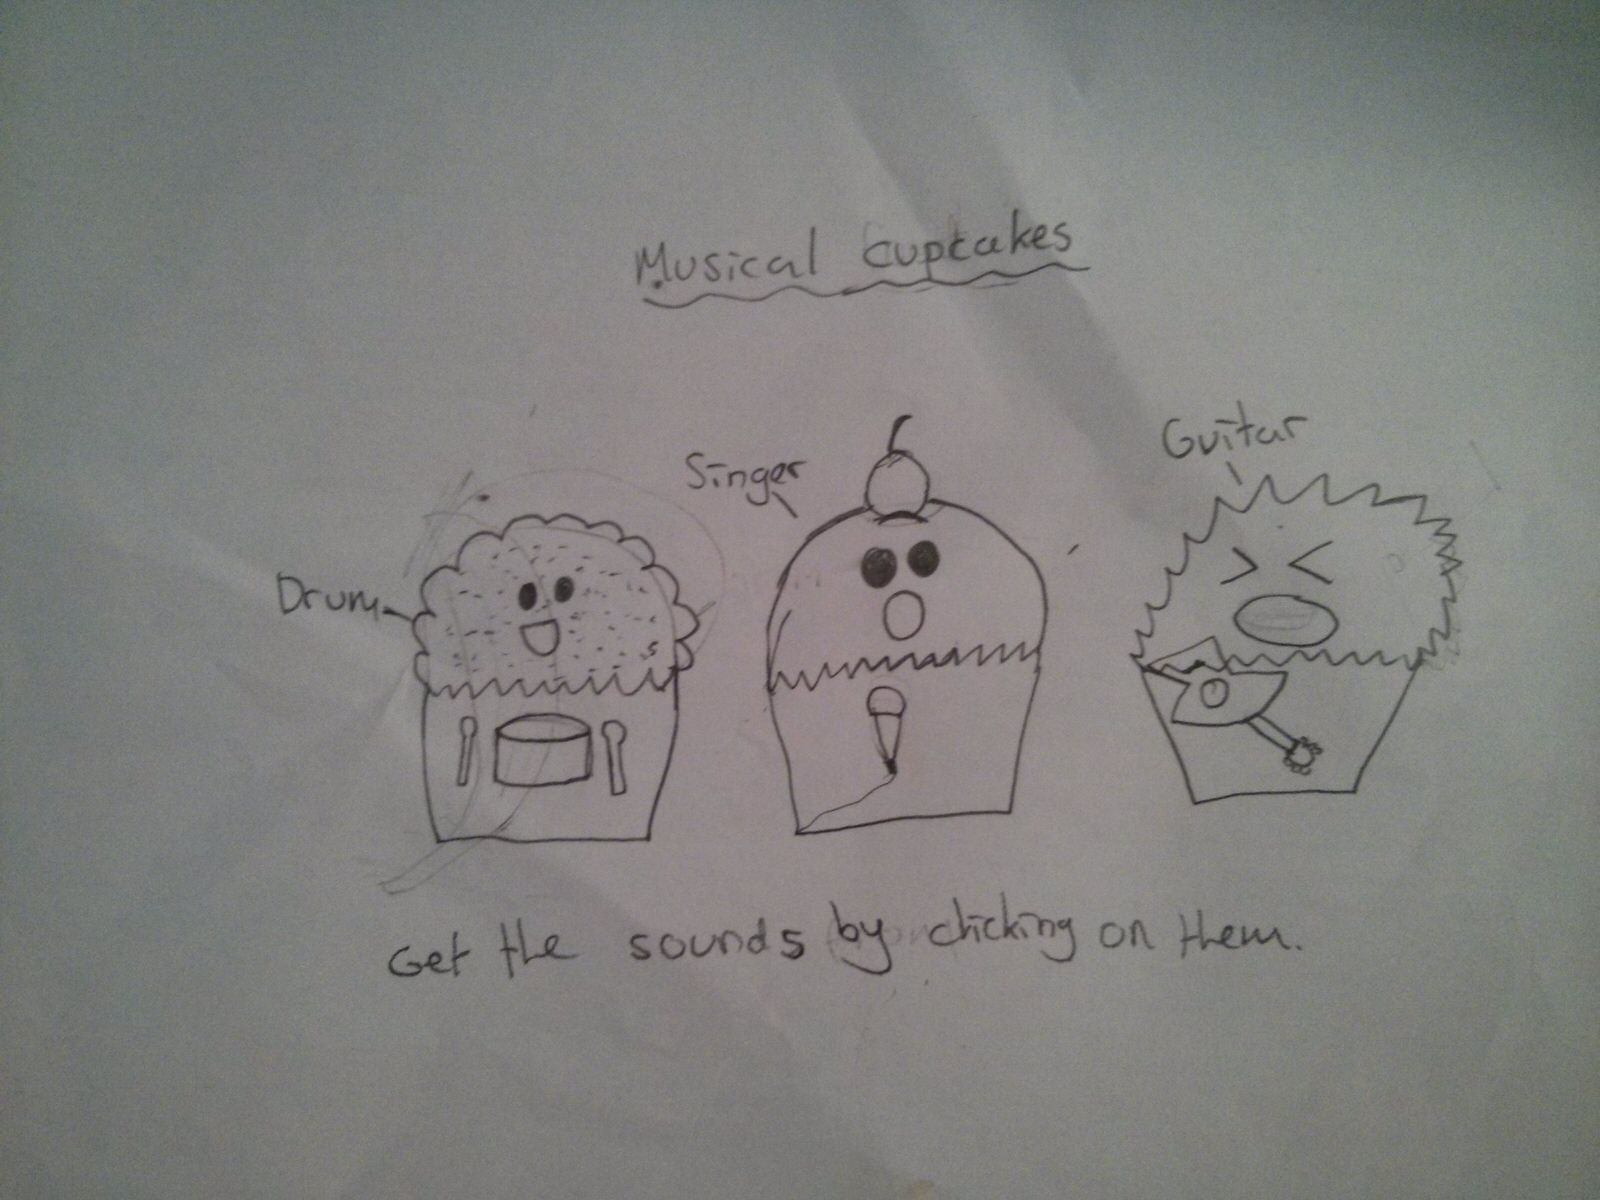 Musical cupcakes
Singer
Guitar
Drum
Get the sounds by clicking on them.